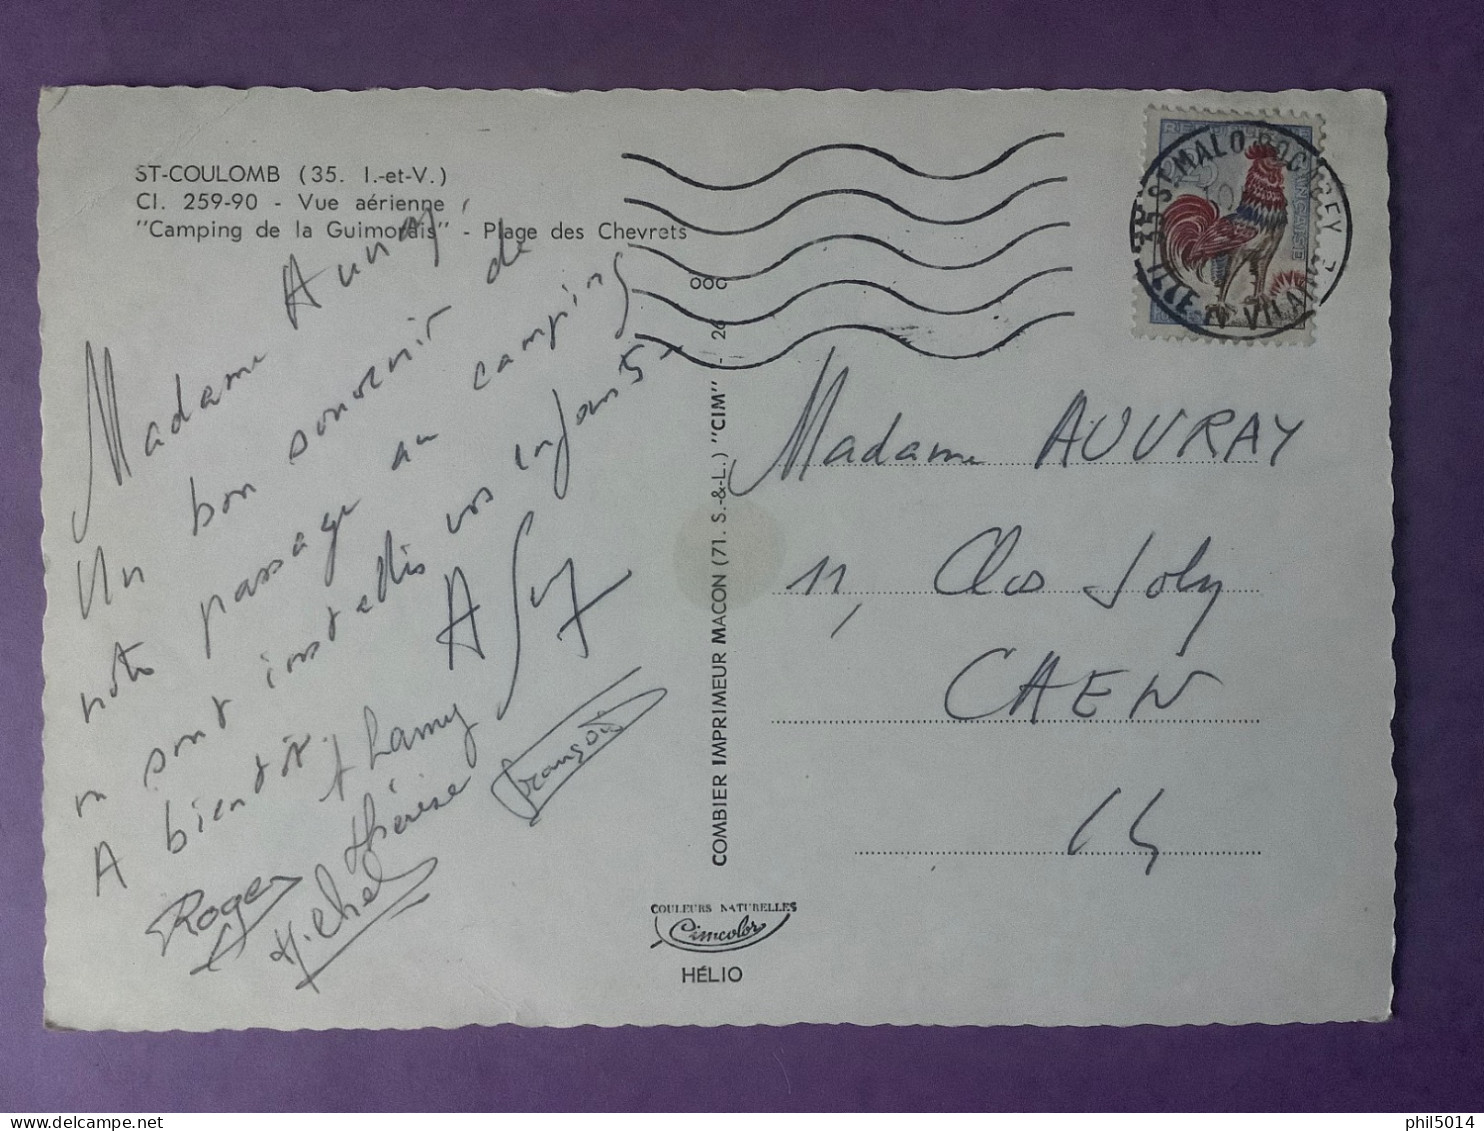 ST-COULOMB (35. I.-et-V.)
Cl. 259-90 - Vue aérienne
"Camping de la Guimorais" - Plage des Chevrets
Madame Auvray
Un bon souvenir de
notre passage au camping
où sont installés vos enfants
A bientôt.
Thérèse
François
Roger
Michel
OOC
COMBIER IMPRIMEUR MACON (71. S.-&-L.) "CIM" - 26
COULEURS NATURELLES
Cimcolor
HÉLIO
35 ST MALO ROCABEY
ILLE-ET-VILAINE
Madame AUVRAY
11, Clos Joly
CAEN
14
phil5014